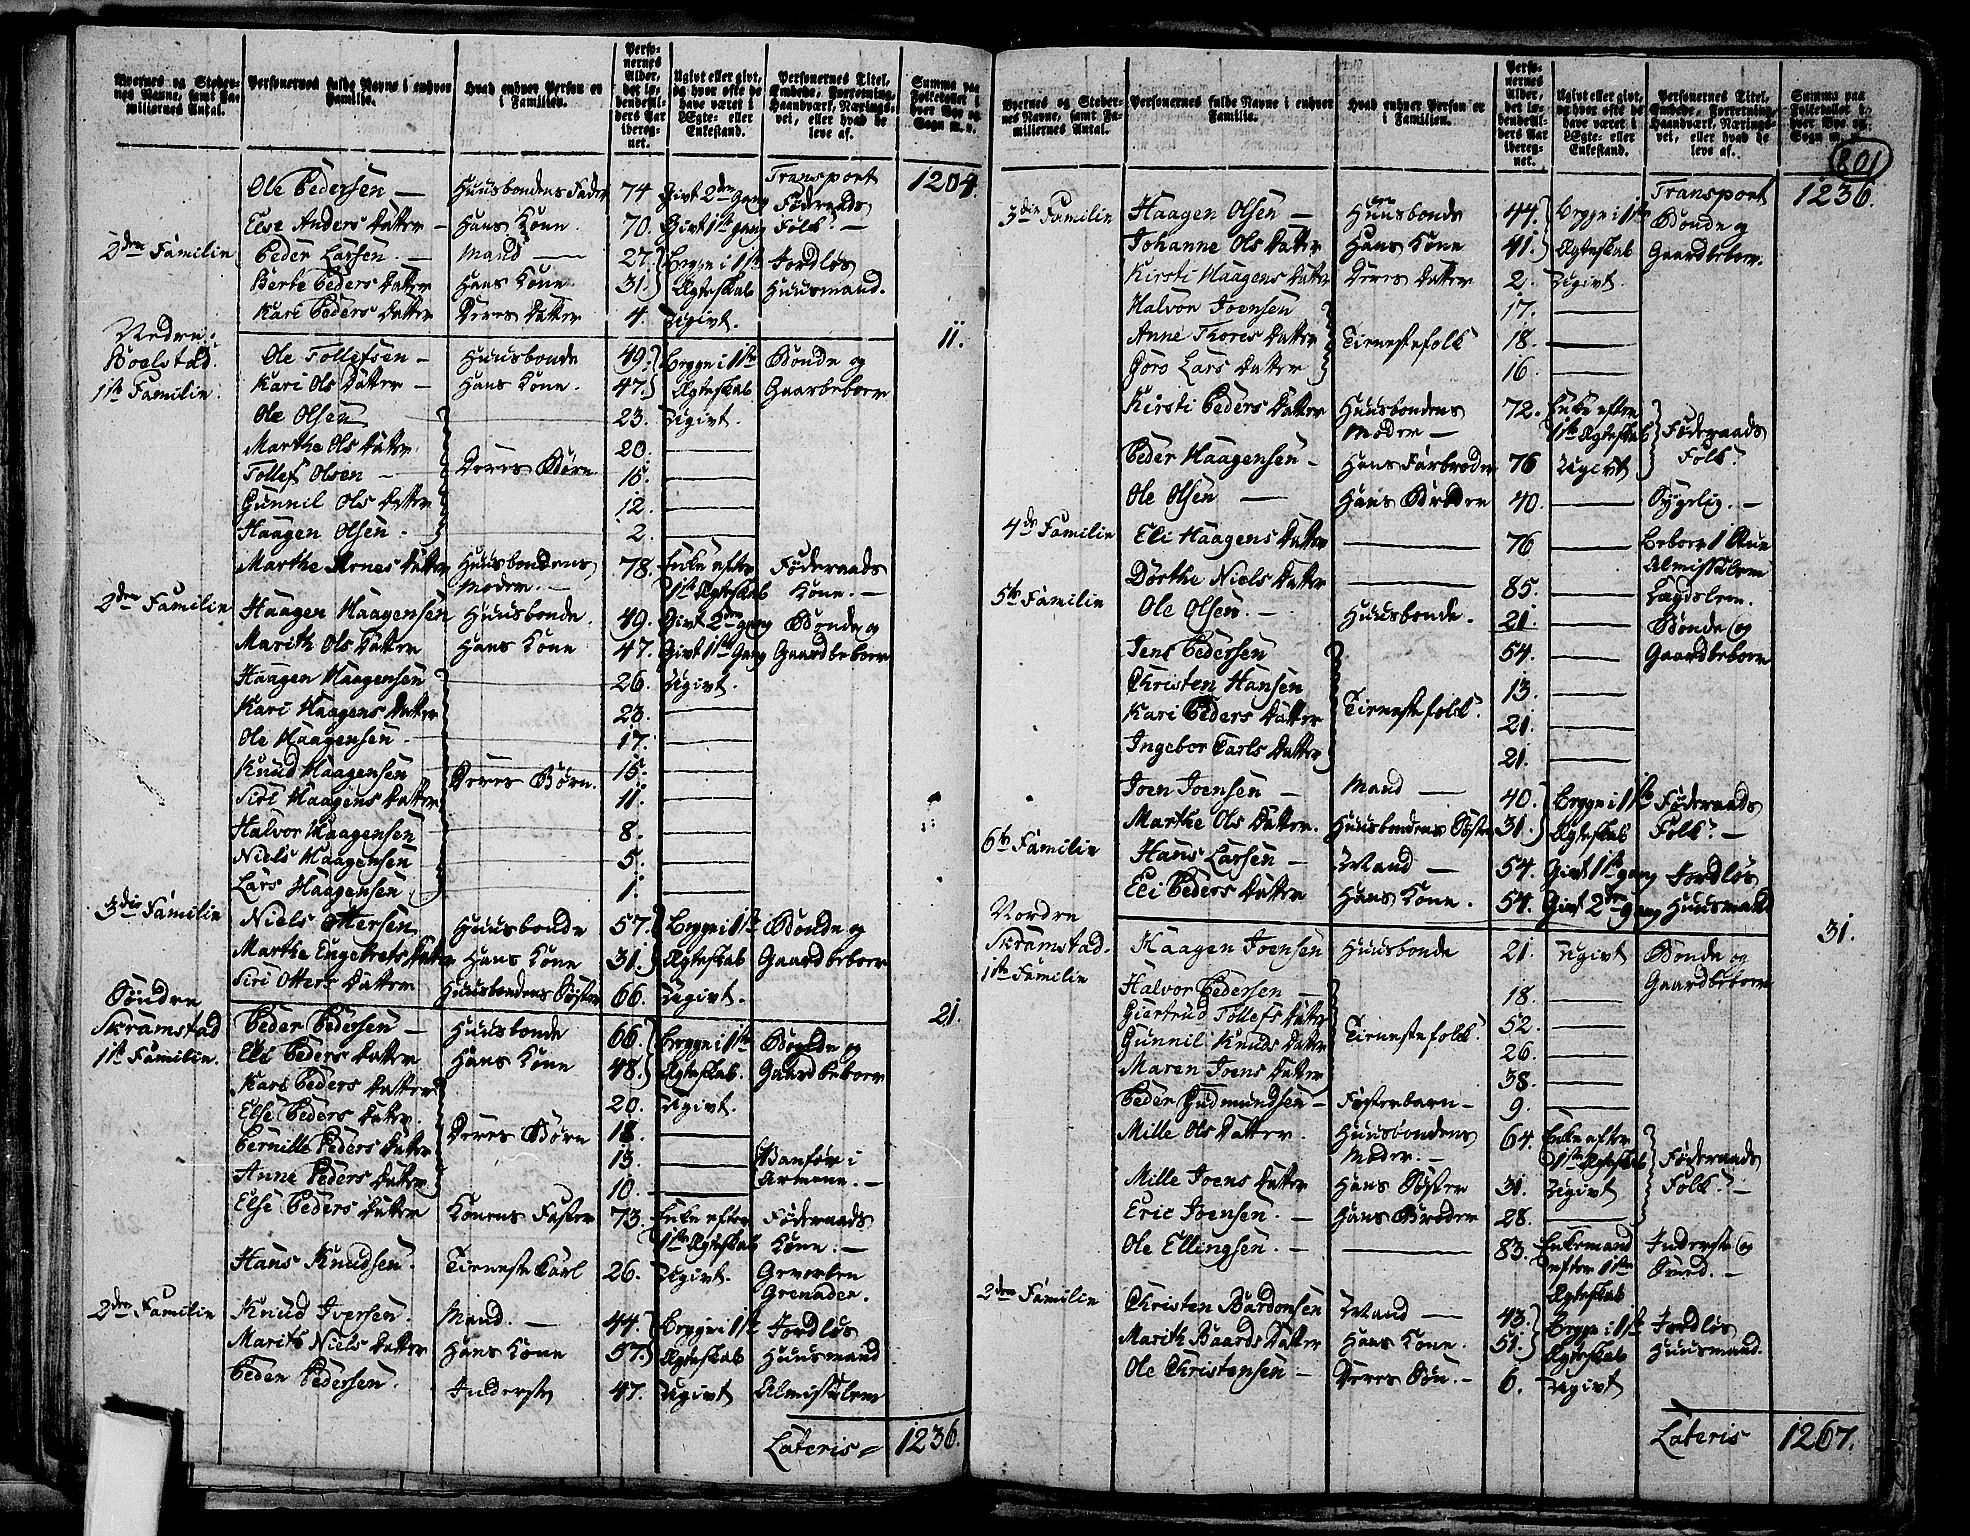 Byernes og Stedernes Navne, samt Familiernes Antal. | Personernes fulde Navne i enhver Familie. | Hvad enhver Person er i Familien. | Personernes Alder, det løbendeAlders Aar iberegnet. | Ugivt eller givt, og hvor ofte de have været i Ægte- eller Enkestand. | Personernes Titel, Embede, Forretning, Haandværk, Næringsvei, eller hvad de leve af. | Summa paa Folketallet i hver Bye og Sogn m. v.
Transport 1204.
Ole Peders̄en — Huusbondens Fader 74 Givt 2den Gang Föderaads
Else Anders Datter — Hans Kone. 70. Givt 1ste gang Folk. —
2den Familie Peder Larsen. — Mand — 27. Begge i 1ste Jordløs
Berte Peders Datter Hans Kone. 31. Ægteskab Huusmand.
Kari Peders Datter Deres Datter 4. Ugivt.
11.
Nedre
Boelstad.
1ste Familie. Ole Tollefsen — Huusbonde 49. Begge i 1ste Bonde og
Kari Ols Datter — Hans Kone. 47. Ægteskab Gaarbeboer
Ole Olsen 23. Ugivt.
Marthe Ols Datter 20. —
Tollef Olsen — Deres Börn 15. —
Gunnil Ols Datter 12. —
Haagen Olsen. 2. —
Marthe Arnes Datter Huusbondens Moder. — 78. Enke efter 1ste Ægteskab Föderaads Kone. —
2den Familie Haagen Haagensen Huusbonde. 49. Givt 2den gang Bonde og
Marith Ols Datter Hans Kone 47. Givt 1ste Gang Gaardbeboer
Haagen Haagensen 26. Ugivt.
Kari Haagens Datter 23. —
Ole Haagensen — 17. —
Knud Haagensen Deres Börn. 15. —
Siri Haagens Datter 11. —
Halvor Haagensen 8. —
Niels Haagensen 5. —
Lars Haagensen 1. —
3die Familie Niels Ottersen Huusbonde 57. Begge i 1ste Bonde og
Marthe Engebrets Datter Hans Kone 31. Ægteskab Gaardbeboer
Siri Otters Datter Huusbondens Söster 66. Ugivt.
21.
Söndre
Skramstad
1ste Familie. Peder Pedersen — Huusbonde 66. Begge i 1ste Bonde og
Eli Peders Datter Hans Kone 48. Ægteskab. Gaardbeboer
Kari Peders Datter 20. Ugivt.
Else Peders Datter Deres Börn 18. —
Pernille Peders Datter 13. —
Anne Peders Datter 10. — Vanför i Armene. —
Else Peders Datter Konens Faster 73. Enke efter 1ste Ægteskab Föderaads Kone. —
Hans Knudsen. Tieneste Karl 26. Ugivt. Gevorben Grenader.
2den Familie Knud Iversen. Mand. — 44. Begge i 1ste Jordløs
Marith Niels Datter Hans Kone 57. Ægteskab Huusmand
Peder Pedersen. Inderste 47. Ugivt Almisselem
Lateris = 1236.
Byernes og Stedernes Navne, samt Familiernes Antal. | Personernes fulde Navne i enhver Familie. | Hvad enhver Person er i Familien. | Personernes Alder, det løbendeAlders Aar iberegnet. | Ugivt eller givt, og hvor ofte de have været i Ægte- eller Enkestand. | Personernes Titel, Embede, Forretning, Haandværk, Næringsvei, eller hvad de leve af. | Summa paa Folketallet i hver Bye og Sogn m. v.
801
Transport 1236.
3die Familie Haagen Olsen — Huusbonde 44. Begge i 1ste Bonde og
Johanne Ols Datter Hans Kone 41. Ægteskab Gaardbeboer.
Kirsti Haagens Datter Deres Datter 2. Ugivt.
Halvor Joensen 17. —
Anne Thores Datter Tienestefolk 18. —
Goro Lars Datter 16. —
Kirsti Peders Datter Huusbondens Moder — 72. Enke efter 1ste Ægteskab Föderaads Folk.
Peder Haagensen — Hans Farbroder 76 Ugivt
Ole Olsen — Hans Broder 40. — Sygelig. —
4de Familie Eli Haagens Datter — 76 — Beboer 1 Stue Almisselem
5te Familie Dorthe Niels Datter — 85. — Lægdslem.
Ole Olsen. — Huusbonde. 21. — Bonde og
Jens Pedersen 54. — Gaardbeboer
Christen Hansen 13. —
Kari Peders Datter Tienestefolk. 21. —
Ingebor Carls Datter 21. —
Joen Joensen — Mand — 40. Begge i 1ste Föderaads
Marthe Ols Datter. Huusbondens Söster 31. Ægteskab Folk. —
6te Familie Hans Larsen — Mand — 54. Givt 1ste gang Jordlös
Eli Peders Datter Hans Kone. 54. Givt 2den gang Huusmand
31.
Nordre
Skramstad.
1ste Familie Haagen Joensen Huusbonde 21. Ugivt Bonde og Gaardbeboer
Halvor Pedersen — 18. —
Giertrud Tollefs Datter Tienestefolk. 52. —
Gunnil Knuds Datter 26. —
Maren Joens Datter 38. —
Peder Gudmundsen — Fosterbarn — 9. —
Mille Ols Datter. Huusbondens Moder. — 64. Enke efter 1ste Ægteskab Föderaads Folk. —
Mille Joens Datter Hans Söster 31. Ugivt
Eric Joensen. — Hans Broder 28. —
Ole Ellingsen. — — 83. Enkemand efter 1ste Ægteskab Inderste og
2den Familie Christen Bardonsen Mand — 43. Begge i 1ste Jordlös
Marith Baards Datter Hans Kone. 51. Ægteskab Huusmand.
Ole Christensen — Deres Sön. — 6. Ugivt
Lateris 1267.